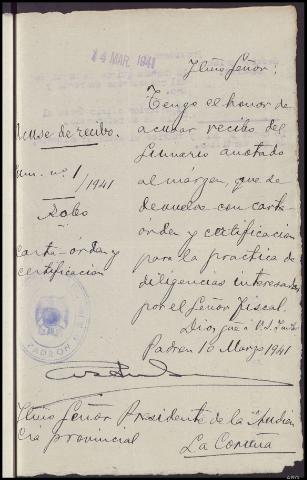 14 MAR. 1941
Ilmo Señor:
Acuse de recibo.
Sum. nº 1/1941
Robo
carta-órden y
certificacion
Tengo el honor de
acusar recibo del
Sumario anotado
al márgen, que se
devuelve con carta-
órden y certificacion
para la practica de
diligencias interesadas
por el Señor Fiscal.
Dios gue a V.S.I. 
Padron 10 Marzo 1941
PADRON
Ilmo Señor Presidente de la Audien
cia provincial
La Coruña